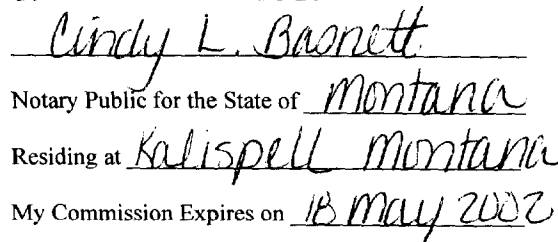 Cindy L. Basnett
Notary Public for the State of Montana
Residing at Kalispell Montana
My Commission Expires on 18 May 2002